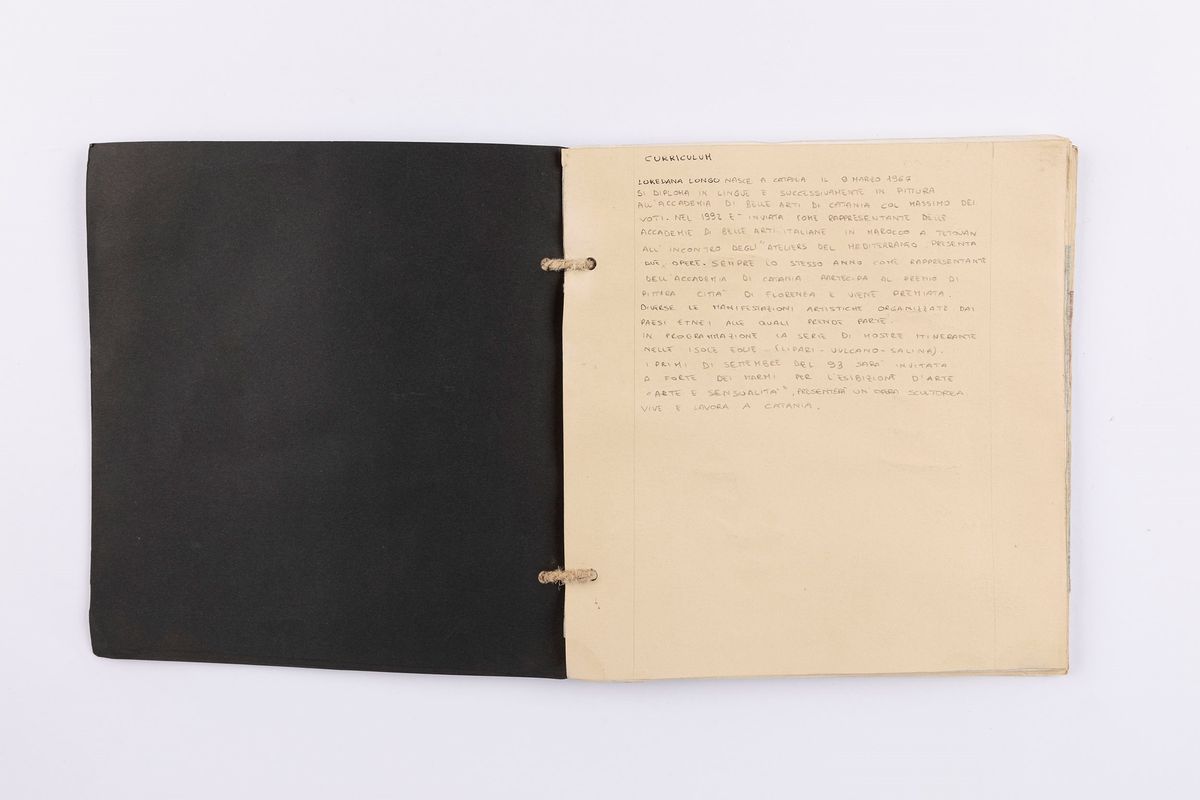 CURRICULUM
LOREDANA LONGO NASCE A CATANIA IL 9 MARZO 1967
SI DIPLOMA IN LINGUE E SUCCESSIVAMENTE IN PITTURA
ALL'ACCADEMIA DI BELLE ARTI DI CATANIA COL MASSIMO DEI
VOTI. NEL 1992 E' INVIATA COME RAPPRESENTANTE DELLE
ACCADEMIE DI BELLE ARTI ITALIANE IN MAROCCO A TETOUAN
ALL'INCONTRO DEGLI "ATELIERS DEL MEDITERRANEO PRESENTA
DUE OPERE. SEMPRE LO STESSO ANNO COME RAPPRESENTANTE
DELL'ACCADEMIA DI CATANIA PARTECIPA AL PREMIO DI
PITTURA CITTA' DI FLORENZA E VIENE PREMIATA.
DIVERSE LE MANIFESTAZIONI ARTISTICHE ORGANIZZATE DAI
PAESI ETNEI ALLE QUALI PRENDE PARTE.
IN PROGRAMMAZIONE LA SERIE DI MOSTRE ITINERANTE
NELLE ISOLE EOLIE (LIPARI - VULCANO - SALINA).
I PRIMI DI SETTEMBRE DEL 93 SARA' INVITATA
A FORTE DEI MARMI PER L'ESIBIZIONE D'ARTE
"ARTE E SENSUALITA'", PRESENTERA' UN OPERA SCULTOREA
VIVE E LAVORA A CATANIA.